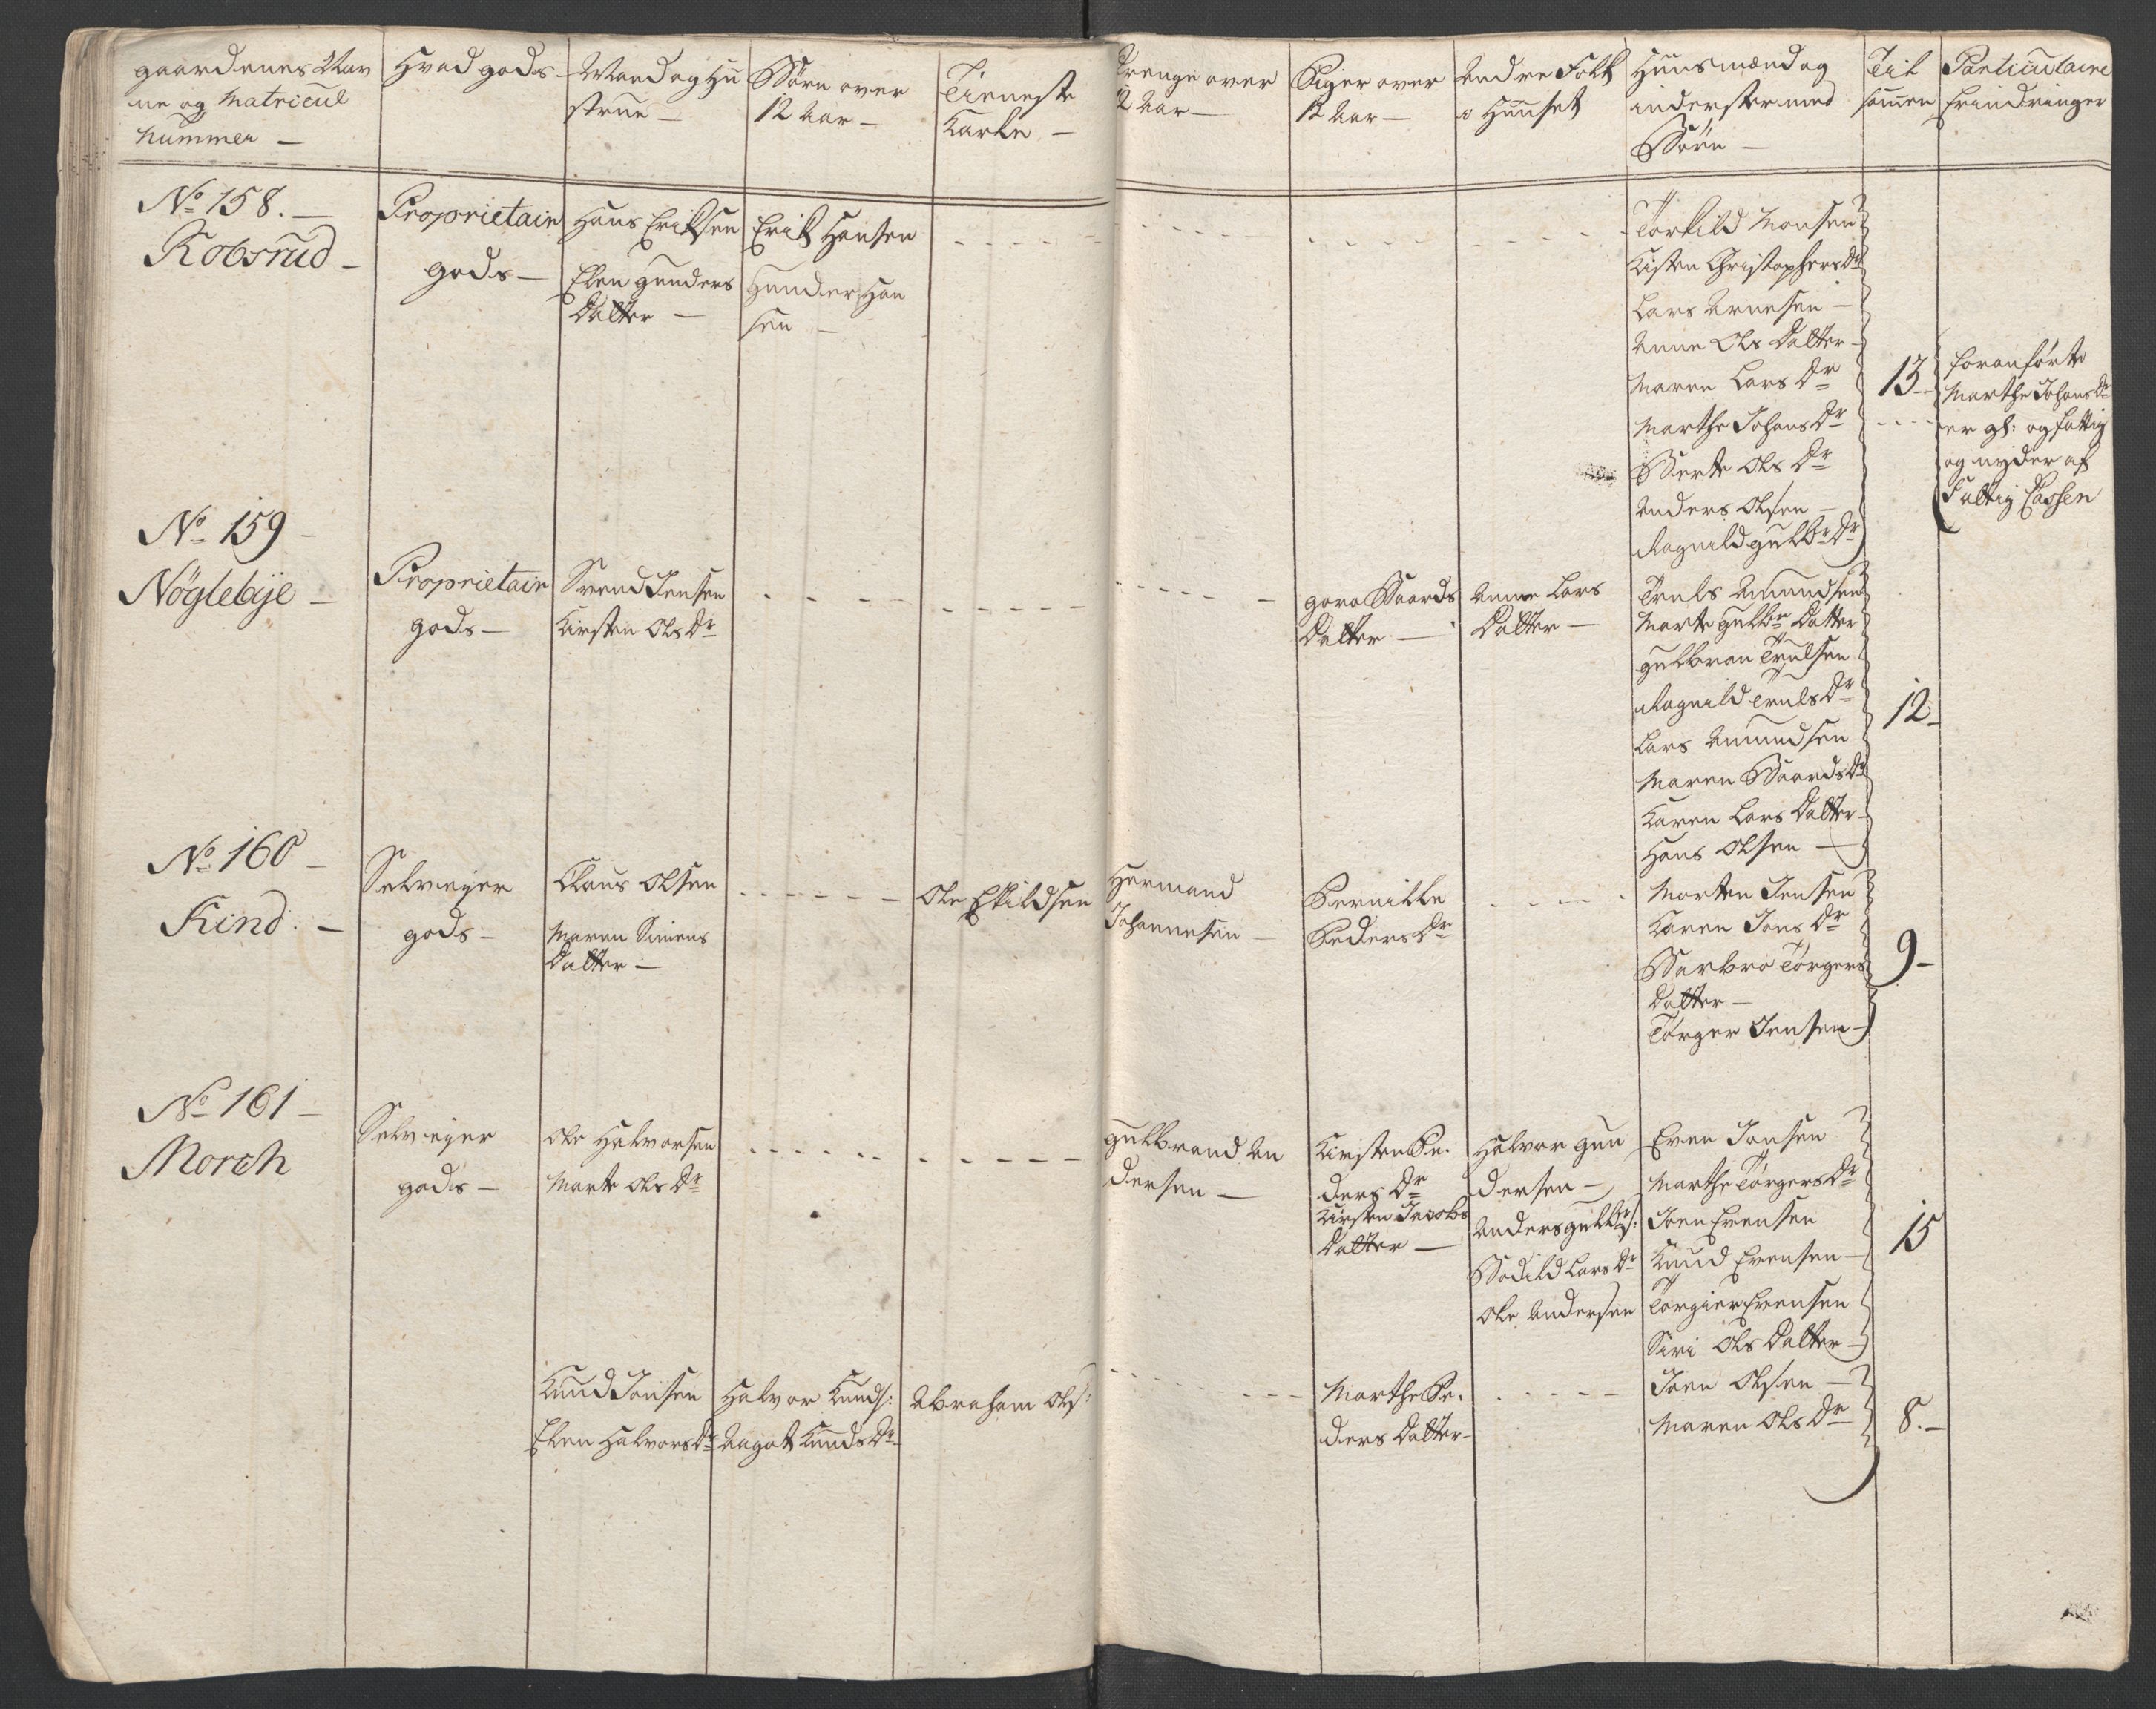 gaardenes Nav
ne og Matricul
Nummer —
Hvad gods —
Mand og Hu
strue —
Børn over
12 Aar —
Tieneste
Karle —
Drenge over
12 Aar —
Piger over
12 Aar —
Andre Folk
i Huuset
Huusmænd og
inderster med
Børn —
Til
sam̄en
Particulaire
Erindringer
No 158. —
Kobsrud —
Proprietair
gods —
Hans Eriksen
Elen Gunders
Datter —
Erik Hansen
Gunder Han
sen —
Torkild Monsen
Kisten Christophers Dr
Lars Arnesen —
Anne Ols Datter —
Maren Lars Dr
Marthe Johans Dr
Berte Ols Dr
Anders Olsen —
Ragnild Gulbr Dr
13 —
foranførte
Marthe Johans Dr
er gl: og fattig
og nyder af
Fattig Cassen
No 159 —
Nöglebÿe —
Proprietair
gods —
Svend Jensen
Kirsten Ols Dr
Goro Baards
Datter —
Anne Lars
Datter —
Truls Amundsen
Marte Gulbr Datter
Gulbran Trulsen
Ragnild Truls Dr
Lars Amundsen
Maren Baards Dr
Karen Lars Datter —
Hans Olsen —
12 —
No 160 —
Kind. —
Selveyer
gods —
Claus Olsen
Maren Simens
Datter —
Ole Eskildsen
Hermand
Johannesen —
Pernille
Peders Dr
Morten Jensen
Karen Jons Dr
Barbro Torgers
Datter —
Torger Jensen —
9 —
No 161 —
Morch
Selveyer
gods —
Ole Halvorsen
Marte Ols Dr
Gulbrand An
dersen —
Kirsten Pe.
ders Dr
Kirsten Jacobs
Datter —
Halvor Gun
dersen —
Anders Gulbrs:
Bodild Lars Dr
Ole Andersen
Even Jonsen
Marthe Torgers Dr
Joen Evensen
Knud Evensen —
Torgier Evensen
Siri Ols Datter —
15
Knud Jonsen
Elen Halvors Dr
Halvor Knuds:
Aagot Knuds Dr
Abraham Ols:
Marthe Pe.
ders Datter —
Joen Olsen —
Maren Ols Dr
8. —